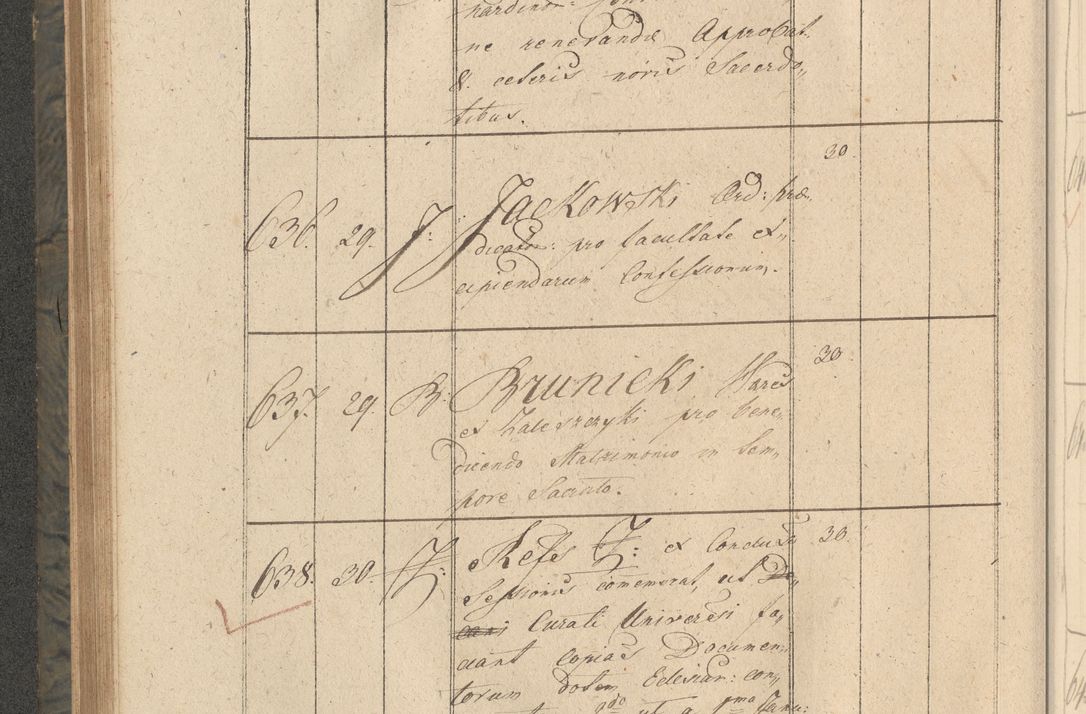 ne venerandis Approbat.
& ceteris noviis Sacerdo„
tibus.
30
636. 29. J: Jackowski Ord: præ
dicator: pro facultate ex„
cipiendarum Confessionum.
637. 29. B: Brunicki Hæres 30
ex Zaleszczyki pro bene„
dicendo Matrimonio in tem„
pore Sacrato.
638. 30. Refes ex Concluso 30
Sessionis comemorat, ut De„
cani Curati Universi fa„
ciant Copias Documen„
torum dotem Eclesiar: con„